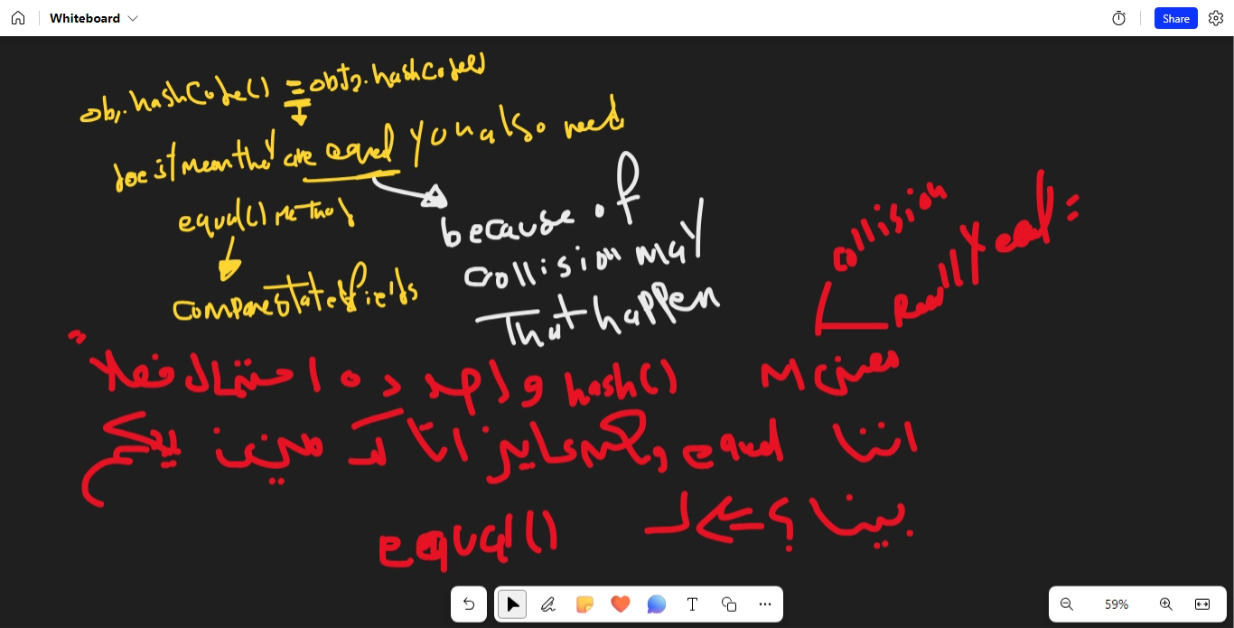 Whiteboard
Share
obj.hashCode() = obj2.hashCode()
doesn't mean they are equal you also need
equal() method
compare state fields
because of
collision may
that happen
collision
Really equal =
hash() واحد ده احتمال فعلا
equal ولكن عايز اتأكد مين يحكم
انتا
بينا ؟ =>
equal()
59%